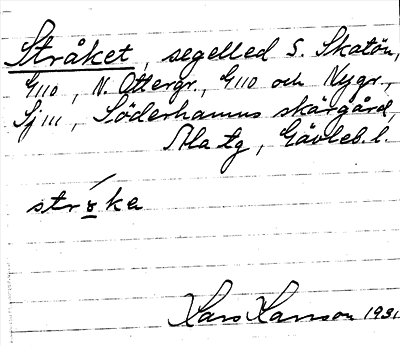 Stråket, segelled S. Skatön,
G 110, N. Ottergr., G 110 och Nygr.,
Sj 111, Söderhamns skärgård,
Ala tg, Gävleb. l.
stro̱ka
Lars Larsson 1931